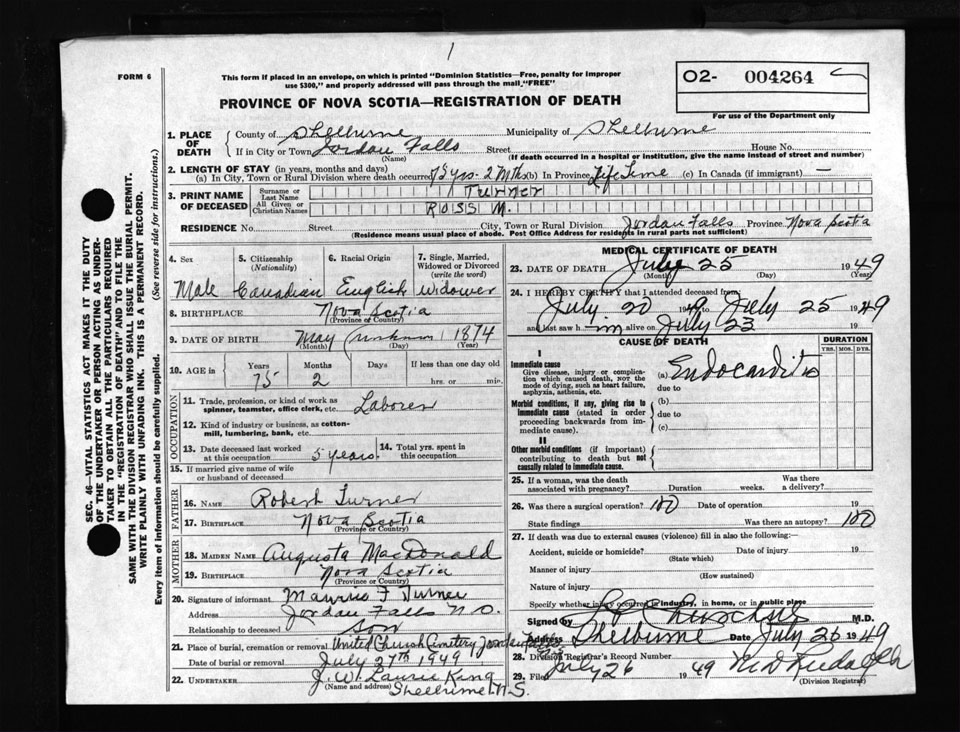 1
FORM 6
This form if placed in an envelope, on which is printed "Dominion Statistics—Free, penalty for improper
use $300," and properly addressed will pass through the mail "FREE"
O2- 004264
For use of the Department only
PROVINCE OF NOVA SCOTIA—REGISTRATION OF DEATH
SEC. 46—VITAL STATISTICS ACT MAKES IT THE DUTY
OF THE UNDERTAKER OR PERSON ACTING AS UNDER-
TAKER TO OBTAIN ALL THE PARTICULARS REQUIRED
IN THE "REGISTRATION OF DEATH" AND TO FILE THE
SAME WITH THE DIVISION REGISTRAR WHO SHALL ISSUE THE BURIAL PERMIT.
WRITE PLAINLY WITH UNFADING INK. THIS IS A PERMANENT RECORD.
Every item of information should be carefully supplied. (See reverse side for instructions.)
1. PLACE OF DEATH
County of Shelburne Municipality of Shelburne
If in City or Town Jordan Falls Street House No.
(Name) (If death occurred in a hospital or institution, give the name instead of street and number)
2. LENGTH OF STAY (in years, months and days)
(a) In City, Town or Rural Division where death occurred 75 yrs - 2 Mths (b) In Province Life Time (c) In Canada (if immigrant) —
3. PRINT NAME OF DECEASED
Surname or Last Name TURNER
All Given or Christian Names ROSS M.
RESIDENCE No. Street City, Town or Rural Division Jordan Falls Province Nova Scotia
(Residence means usual place of abode. Post Office Address for residents in rural parts not sufficient)
4. Sex 5. Citizenship (Nationality) 6. Racial Origin 7. Single, Married, Widowed or Divorced (write the word)
Male Canadian English Widower
8. BIRTHPLACE Nova Scotia
(Province or Country)
9. DATE OF BIRTH May unknown 1874
(Month) (Day) (Year)
10. AGE in Years Months Days If less than one day old
75 2 hrs. or min.
OCCUPATION
11. Trade, profession, or kind of work as
spinner, teamster, office clerk, etc. Laborer
12. Kind of industry or business, as cotton-
mill, lumbering, bank, etc.
13. Date deceased last worked
at this occupation 5 years.
14. Total yrs. spent
in this occupation
15. If married give name of wife
or husband of deceased
FATHER
16. NAME Robert Turner
17. BIRTHPLACE Nova Scotia
(Province or Country)
MOTHER
18. MAIDEN NAME Augusta MacDonald
19. BIRTHPLACE Nova Scotia
(Province or Country)
20. Signature of informant Maurice F Turner
Address Jordan Falls N.S.
Relationship to deceased Son
21. Place of burial, cremation or removal United Church Cemetery Jordan Falls
Date of burial or removal July 27th 1949
22. UNDERTAKER J. W. Laurie King
(Name and address) Shelburne N.S.
MEDICAL CERTIFICATE OF DEATH
23. DATE OF DEATH July 25 1949
(Month) (Day) (Year)
24. I HEREBY CERTIFY that I attended deceased from:
July 20 1949 to July 25 1949
and last saw h im alive on July 23 19
CAUSE OF DEATH
DURATION
YRS. MOS. DYS.
I
Immediate cause
Give disease, injury or complica-
tion which caused death, not the
mode of dying, such as heart failure,
asphyxia, asthenia, etc.
(a) Endocarditis
due to
Morbid conditions, if any, giving rise to
immediate cause (stated in order
proceeding backwards from im-
mediate cause).
(b)
due to
(c)
II
Other morbid conditions (if important)
contributing to death but not
causally related to immediate cause.
25. If a woman, was the death
associated with pregnancy? Duration weeks. Was there
a delivery?
26. Was there a surgical operation? no Date of operation 19
State findings Was there an autopsy? no
27. If death was due to external causes (violence) fill in also the following:—
Accident, suicide or homicide? Date of injury 19
(State which)
Manner of injury
(How sustained)
Nature of injury
Specify whether injury occurred in industry, in home, or in public place
Signed by Churchill M.D.
Address Shelburne Date July 26 1949
28. Division Registrar's Record Number
29. Filed July 26 1949
(Division Registrar)